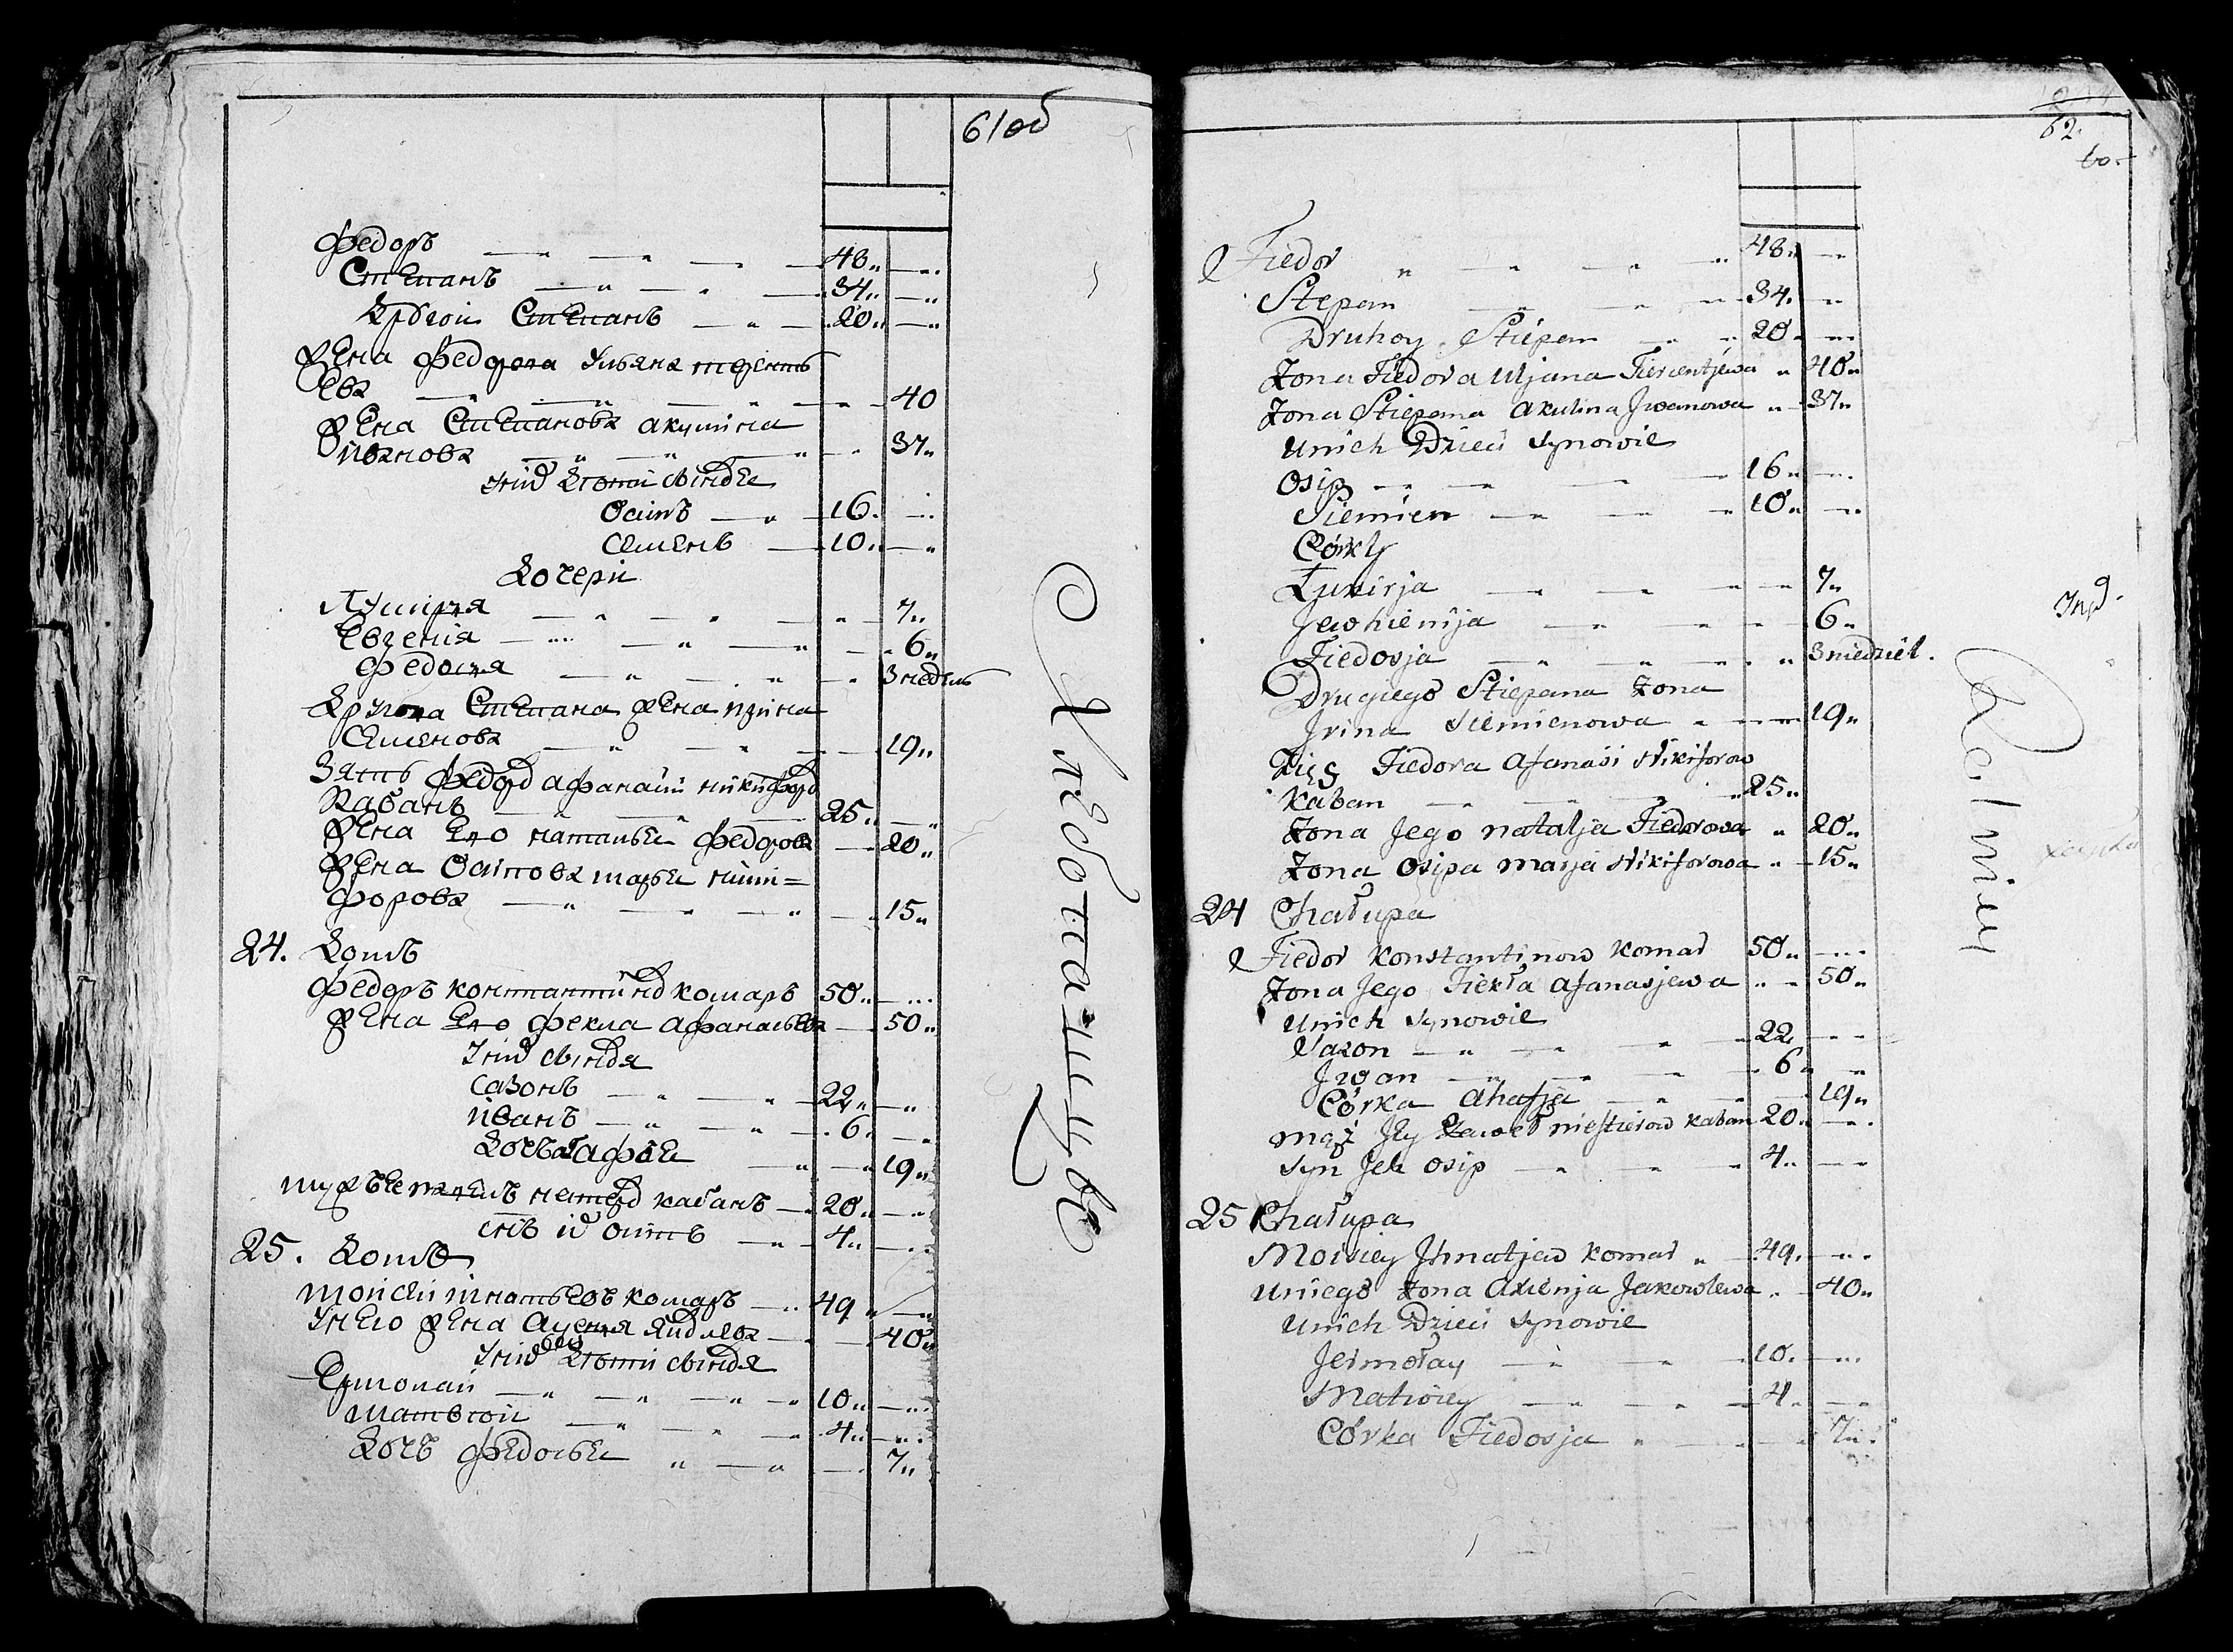 61об
Федоръ 48
Степанъ 34
Другои Степанъ 20
Жена Федора Ульяна Терентьева 40
Жена Степанова Акулина
Иванова 37
У них Дети сыновья
Осипъ 16
Семенъ 10
Дочери
Лукирья 7
Евгения 6
Федосья 3 недель
Другова Степана жена Ирина
Семенова 19
Зять Федора Афанасий Никифоров
Кабанъ 25
Жена Его Наталья Федорова 20
Жена Осипова Марья Ники=
форова 15
24. Домъ
Федоръ Константинов Комаръ 50
Жена Его Фекла Афанасьева 50
У них сыновья
Сазонъ 22
Иванъ 6
Дочь Агафья 19
Мужъ Ее Нестеров Кабанъ 20
сынъ их Осипъ 4
25. Домъ
Моисеи Игнатьевъ Комаръ 49
У него Жена Аксенья Яковлева 40
У них Дети сыновья
Ермолаи 10
Матвеи 4
Дочь Федосья 7
Хлеботащуве
62.
60.
Fiedor 48
Stepan 34
Druhoy Stiepan 20
Zona Fiedora Uljana Tierentjewa 40
Zona Stiepana Akulina Jwanowa 37
Unich Dzieci Synowie
Osip 16
Siemien 10
Córky
Łukirja 7
Jewhienija 6
Fiedosja 3 niedziel.
Drugiego Stiepana Zona
Jrina Siemienowa 19
Zięć Fiedora Afanasi Nikiforow
Kaban 25
Zona Jego Natalja Fiedorowa 20
Zona Osipa Marja Nikiforowa 15
24 Chałupa
Fiedor Konstantinow Komar 50
Zona Jego Fiekła Afanasjewa 50
Unich Synowie
Sazon 22
Jwan 6
Córka Ahafja 19
Mąż Jey Niestierow Kaban 20
Syn Jch Osip 4
25 Chałupa
Moisiey Jhnatjew Komar 49
Uniego Zona Axienja Jakowlewa 40
Unich Dzieci Synowie
Jermołay 10
Matwiey 4
Córka Fiedosja 7